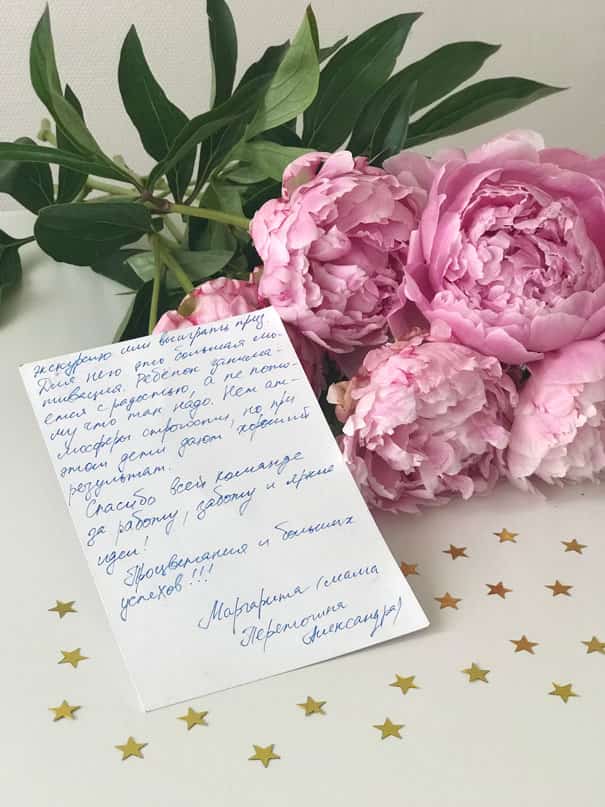 экскурсию или выиграть приз.
Для него это большая мо-
тивация. Ребёнок занима-
ется с радостью, а не пото-
му что так надо. Нет ат-
мосферы строгости, но при
этом дети дают хороший
результат.
Спасибо всей команде
за работу, заботу и яркие
идеи!
Процветания и больших
успехов!!!
Маргарита (мама
Перетогина
Александра)